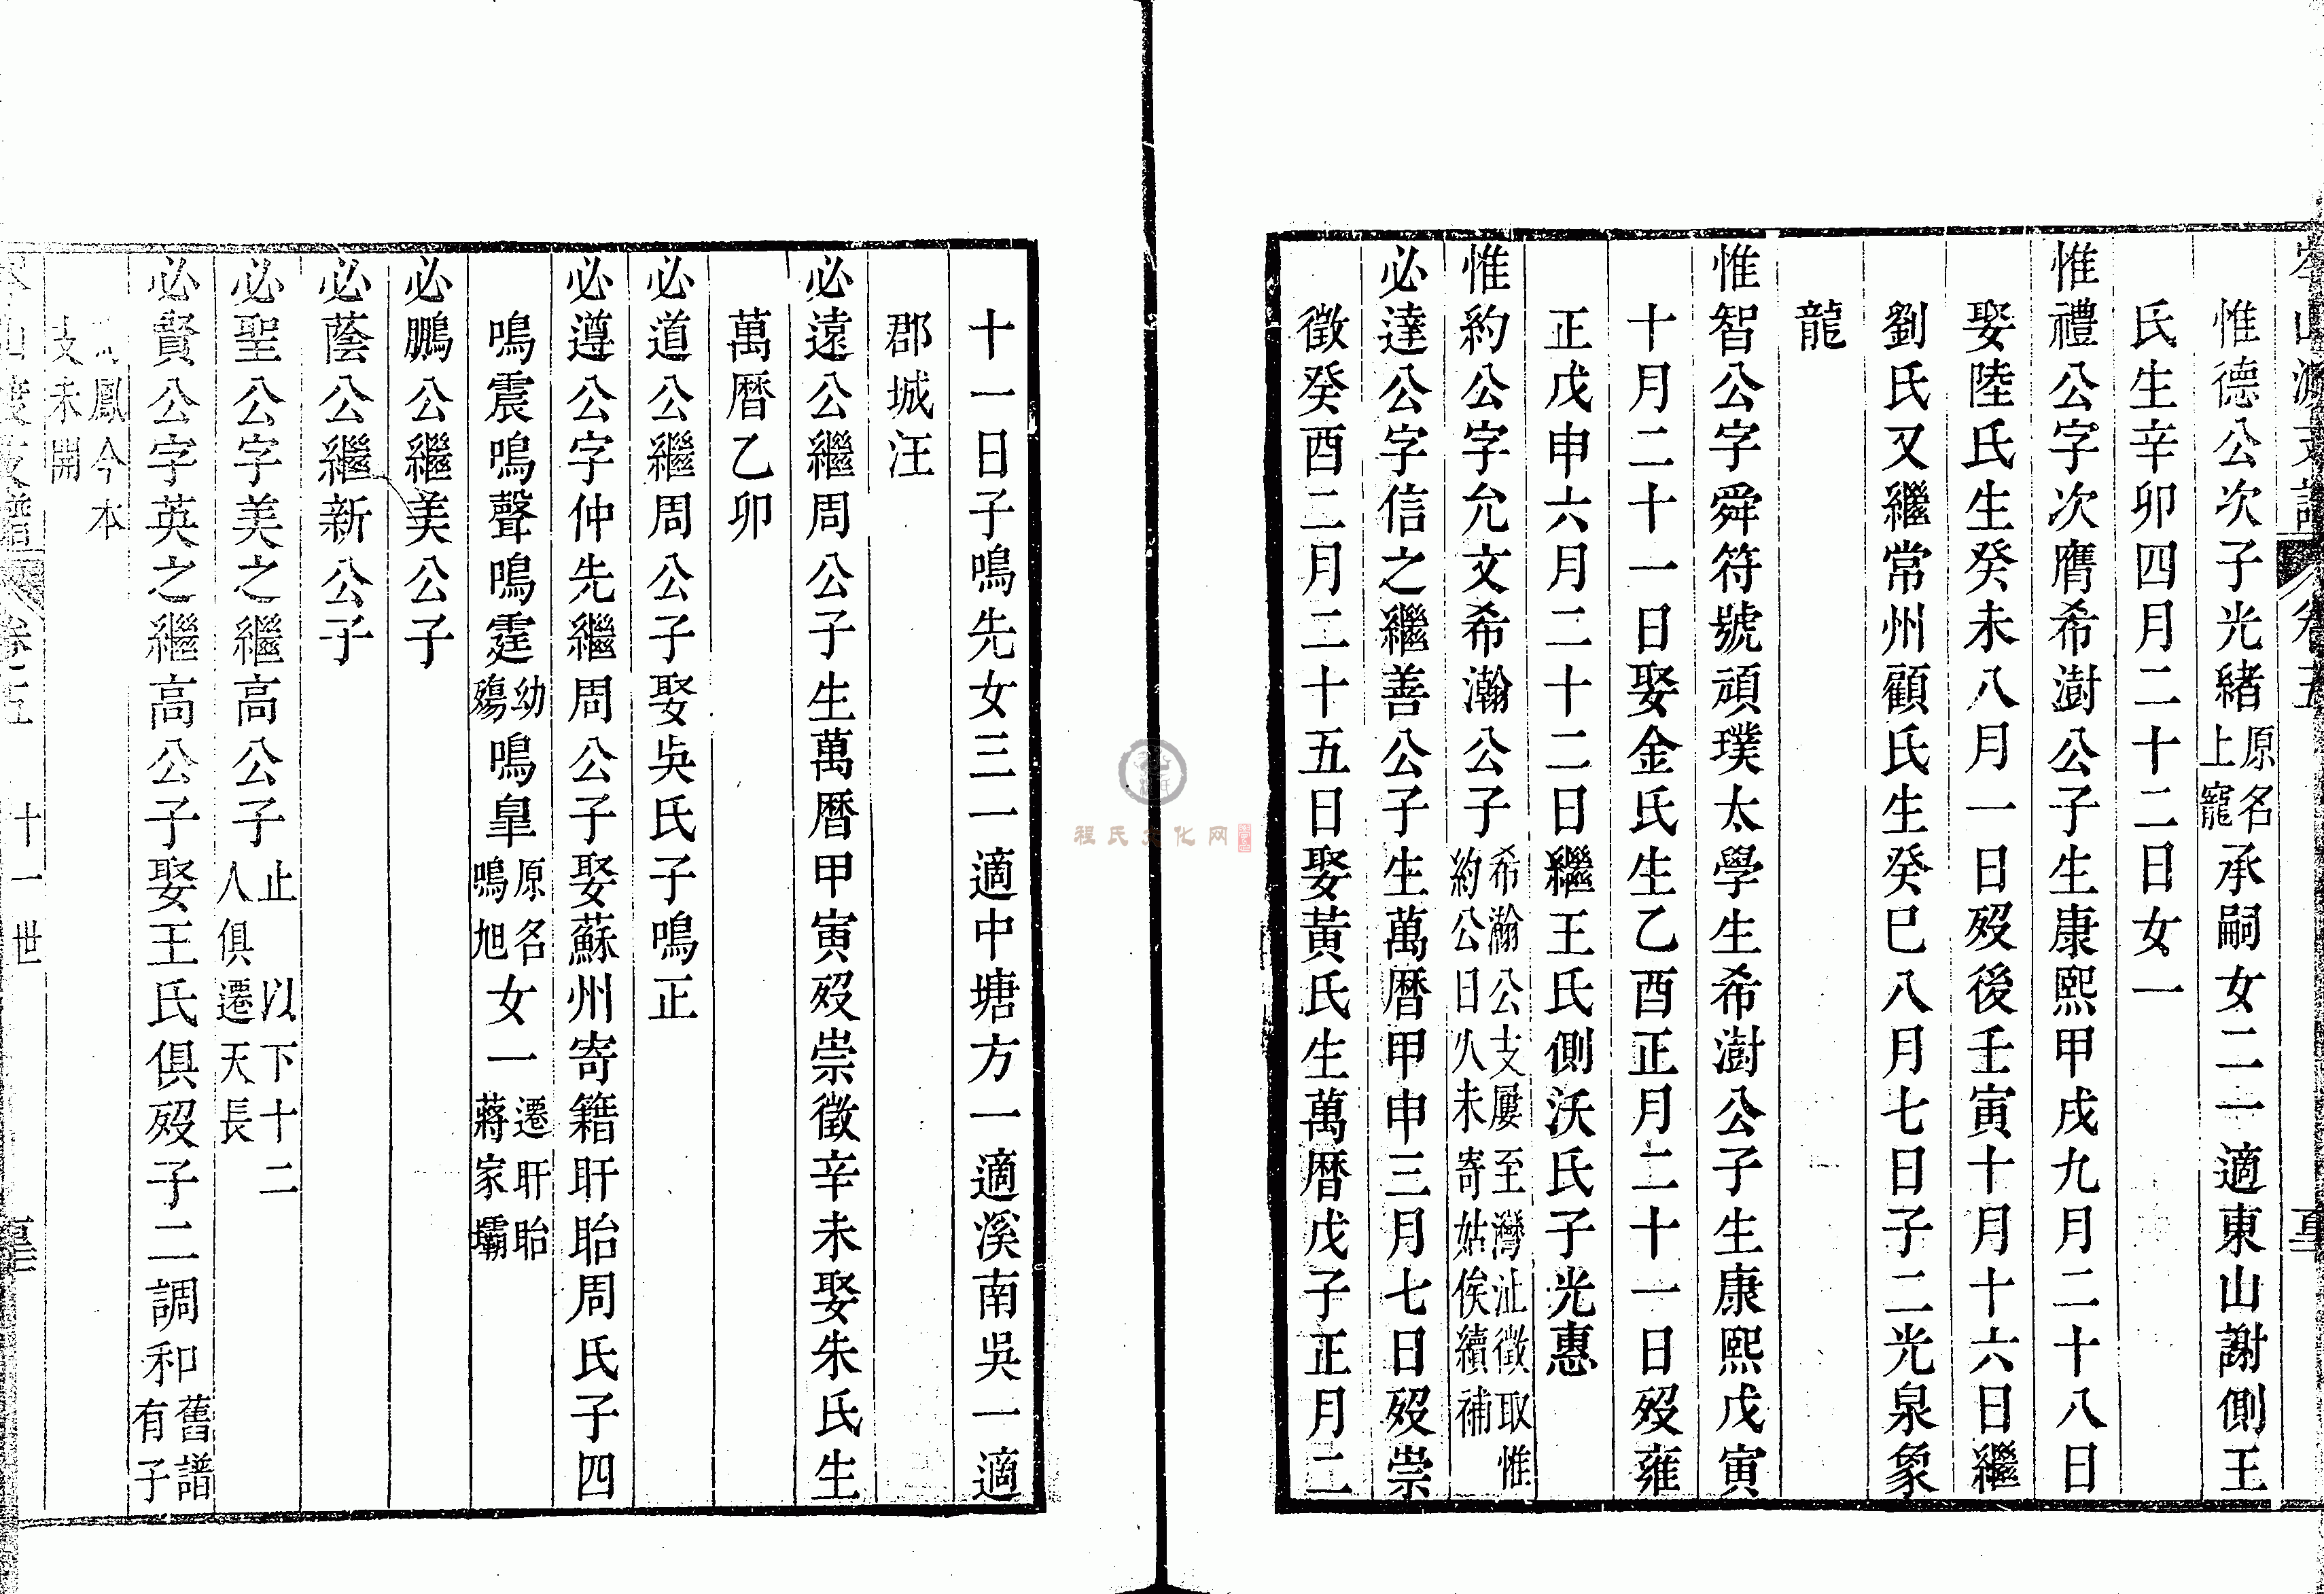 岑山渡支譜 卷五
惟德公次子光緒原名上寵承嗣女二一適東山謝側王
氏生辛卯四月二十二日女一
惟禮公字次膺希澍公子生康熙甲戌九月二十八日
娶陸氏生癸未八月一日歿後壬寅十月十六日繼
劉氏又繼常州顧氏生癸巳八月七日子二光泉象
龍
惟智公字舜符號頑璞太學生希澍公子生康熙戊寅
十月二十一日娶金氏生乙酉正月二十一日歿雍
正戊申六月二十二日繼王氏側沃氏子光惠
惟約公字允文希瀚公子希瀚公支屢至灣沚徵取惟約公日久未寄姑俟續補
必達公字信之繼善公子生萬曆甲申三月七日歿崇
徵癸酉二月二十五日娶黃氏生萬曆戊子正月二
十一日子鳴先女三一適中塘方一適溪南吳一適
郡城汪
必遠公繼周公子生萬曆甲寅歿崇徵辛未娶朱氏生
萬曆乙卯
必道公繼周公子娶吳氏子鳴正
必遵公字仲先繼周公子娶蘇州寄籍盱眙周氏子四
鳴震鳴聲鳴霆幼殤鳴皐原名鳴旭女一遷盱眙蔣家壩
必鵬公繼美公子
必蔭公繼新公子
必聖公字美之繼高公子止以下十二人俱遷天長
必賢公字英之繼高公子娶王氏俱歿子二調和舊譜有子
鳳今本支未開
岑山渡支譜 卷五 十一世